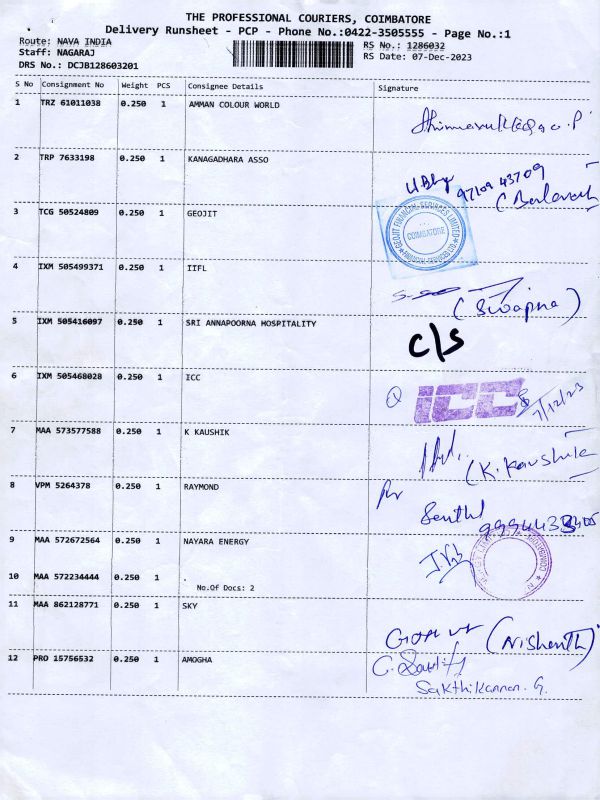 THE PROFESSIONAL COURIERS, COIMBATORE
Delivery Runsheet - PCP - Phone No.:0422-3505555 - Page No.:1
Route: NAVA INDIA
Staff: NAGARAJ
DRS No.: DCJB128603201
RS No.: 1286032
RS Date: 07-Dec-2023
S No Consignment No Weight PCS Consignee Details Signature
1 TRZ 61011038 0.250 1 AMMAN COLOUR WORLD
2 TRP 7633198 0.250 1 KANAGADHARA ASSO
97109 43709
3 TCG 50524809 0.250 1 GEOJIT
GEOJIT FINANCIAL SERVICES LIMITED
COIMBATORE
4 IXM 505499371 0.250 1 IIFL
(Swapna)
5 IXM 505416097 0.250 1 SRI ANNAPOORNA HOSPITALITY
c/s
6 IXM 505468028 0.250 1 ICC
ICC
7/12/23
7 MAA 573577588 0.250 1 K KAUSHIK
(K. Kaushik
8 VPM 5264378 0.250 1 RAYMOND
Senthil
9 MAA 572672564 0.250 1 NAYARA ENERGY
10 MAA 572234444 0.250 1
No.Of Docs: 2
11 MAA 862128771 0.250 1 SKY
(Nishanth)
12 PRO 15756532 0.250 1 AMOGHA
Sakthikannan. G